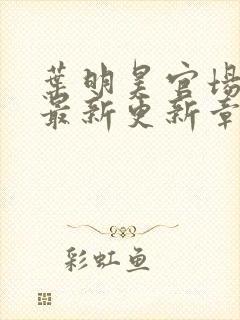 葉明昊官場
最新更新章
彩虹鱼